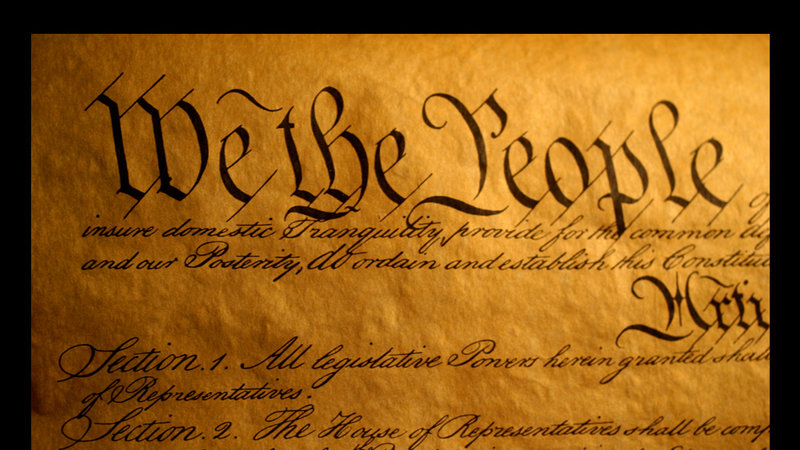 We the People
insure domestic Tranquility, provide for the common
and our Posterity, do ordain and establish this Constitu
Artic
Section. 1. All legislative Powers herein granted shall
of Representatives.
Section. 2. The House of Representatives shall be comp